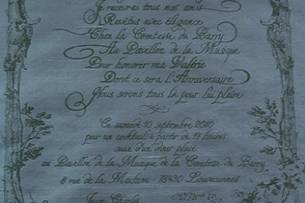 Je recevrai tous mes amis
Revêtus avec élégance
Chez la Comtesse du Barry
Au Pavillon de la Musique
Pour honorer ma Valérie
Dont ce sera l'Anniversaire
Nous serons tous là pour lui plaire
Ce samedi 10 septembre 2010
pour un cocktail à partir de 19 heures
suivi d'un dîner placé
au Pavillon de la Musique de la Comtesse du Barry
8 rue de la Machine 78430 Louveciennes